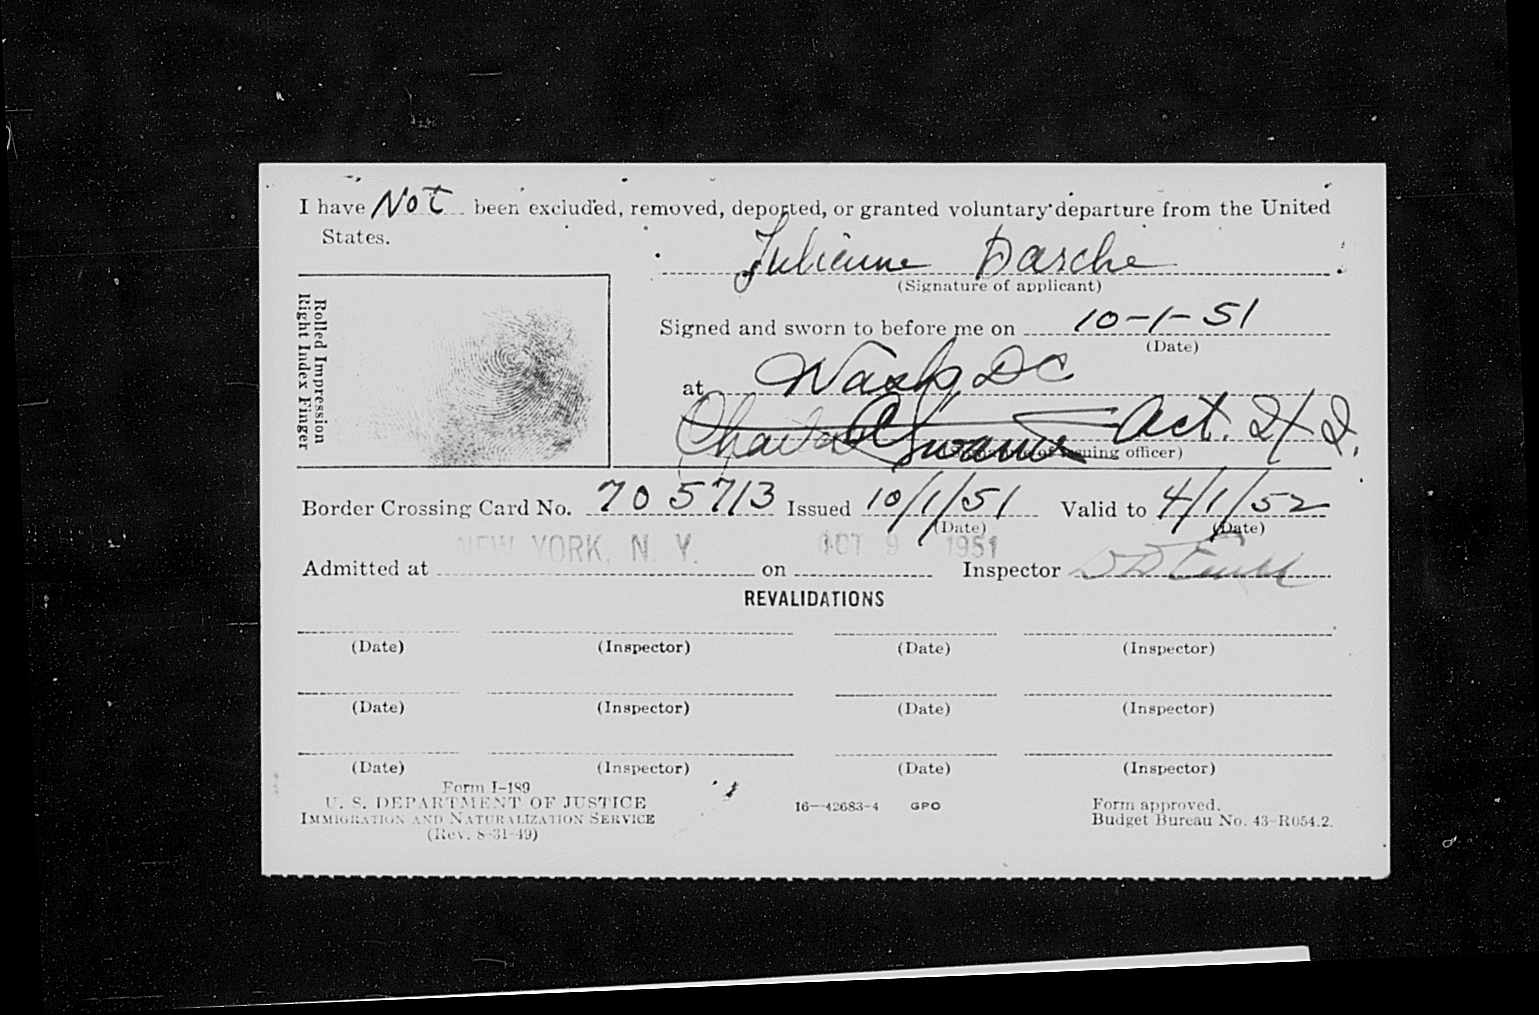 I have Not been excluded, removed, deported, or granted voluntary departure from the United
States.
Julienne Dasche
(Signature of applicant)
Rolled Impression
Right Index Finger
Signed and sworn to before me on 10-1-51
(Date)
at Wash DC
Charles C Swann Act.
issuing officer)
Border Crossing Card No. 705713 Issued 10/1/51 Valid to 4/1/52
(Date) (Date)
NEW YORK, N. Y. OCT 9 1951
Admitted at on Inspector
REVALIDATIONS
(Date) (Inspector) (Date) (Inspector)
(Date) (Inspector) (Date) (Inspector)
(Date) (Inspector) (Date) (Inspector)
Form I-189
U. S. DEPARTMENT OF JUSTICE
IMMIGRATION AND NATURALIZATION SERVICE
(Rev. 8-31-49)
16—42683-4 GPO
Form approved.
Budget Bureau No. 43-R054.2.